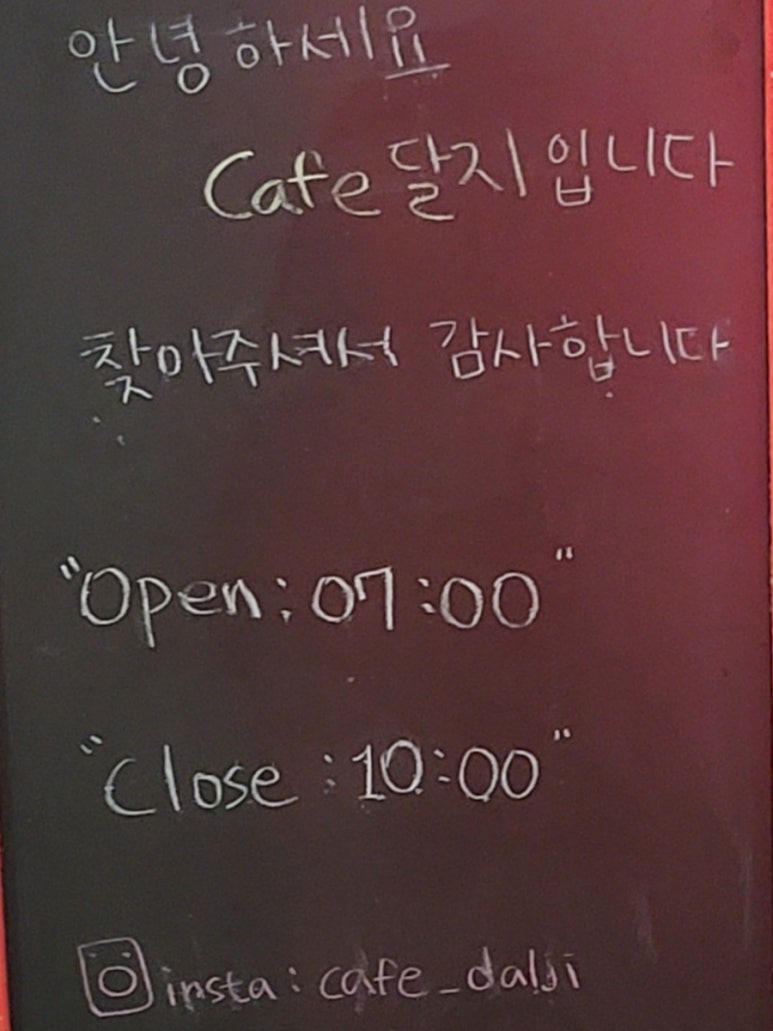 안녕하세요
Cafe 달지입니다
찾아주셔서 감사합니다
"Open:07:00"
"Close:10:00"
insta: cafe_dalji